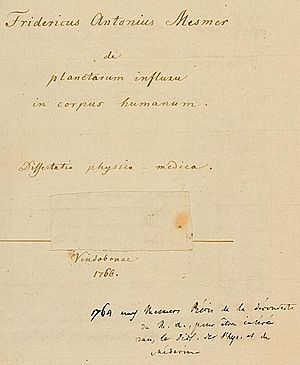 Fridericus Antonius Mesmer
de
planetarum influxu
in corpus humanum.
Dissertatio physico-medica.
Vindobonae
1766.
de la découverte
du M. a., pour être
Phys. et de
Médecine